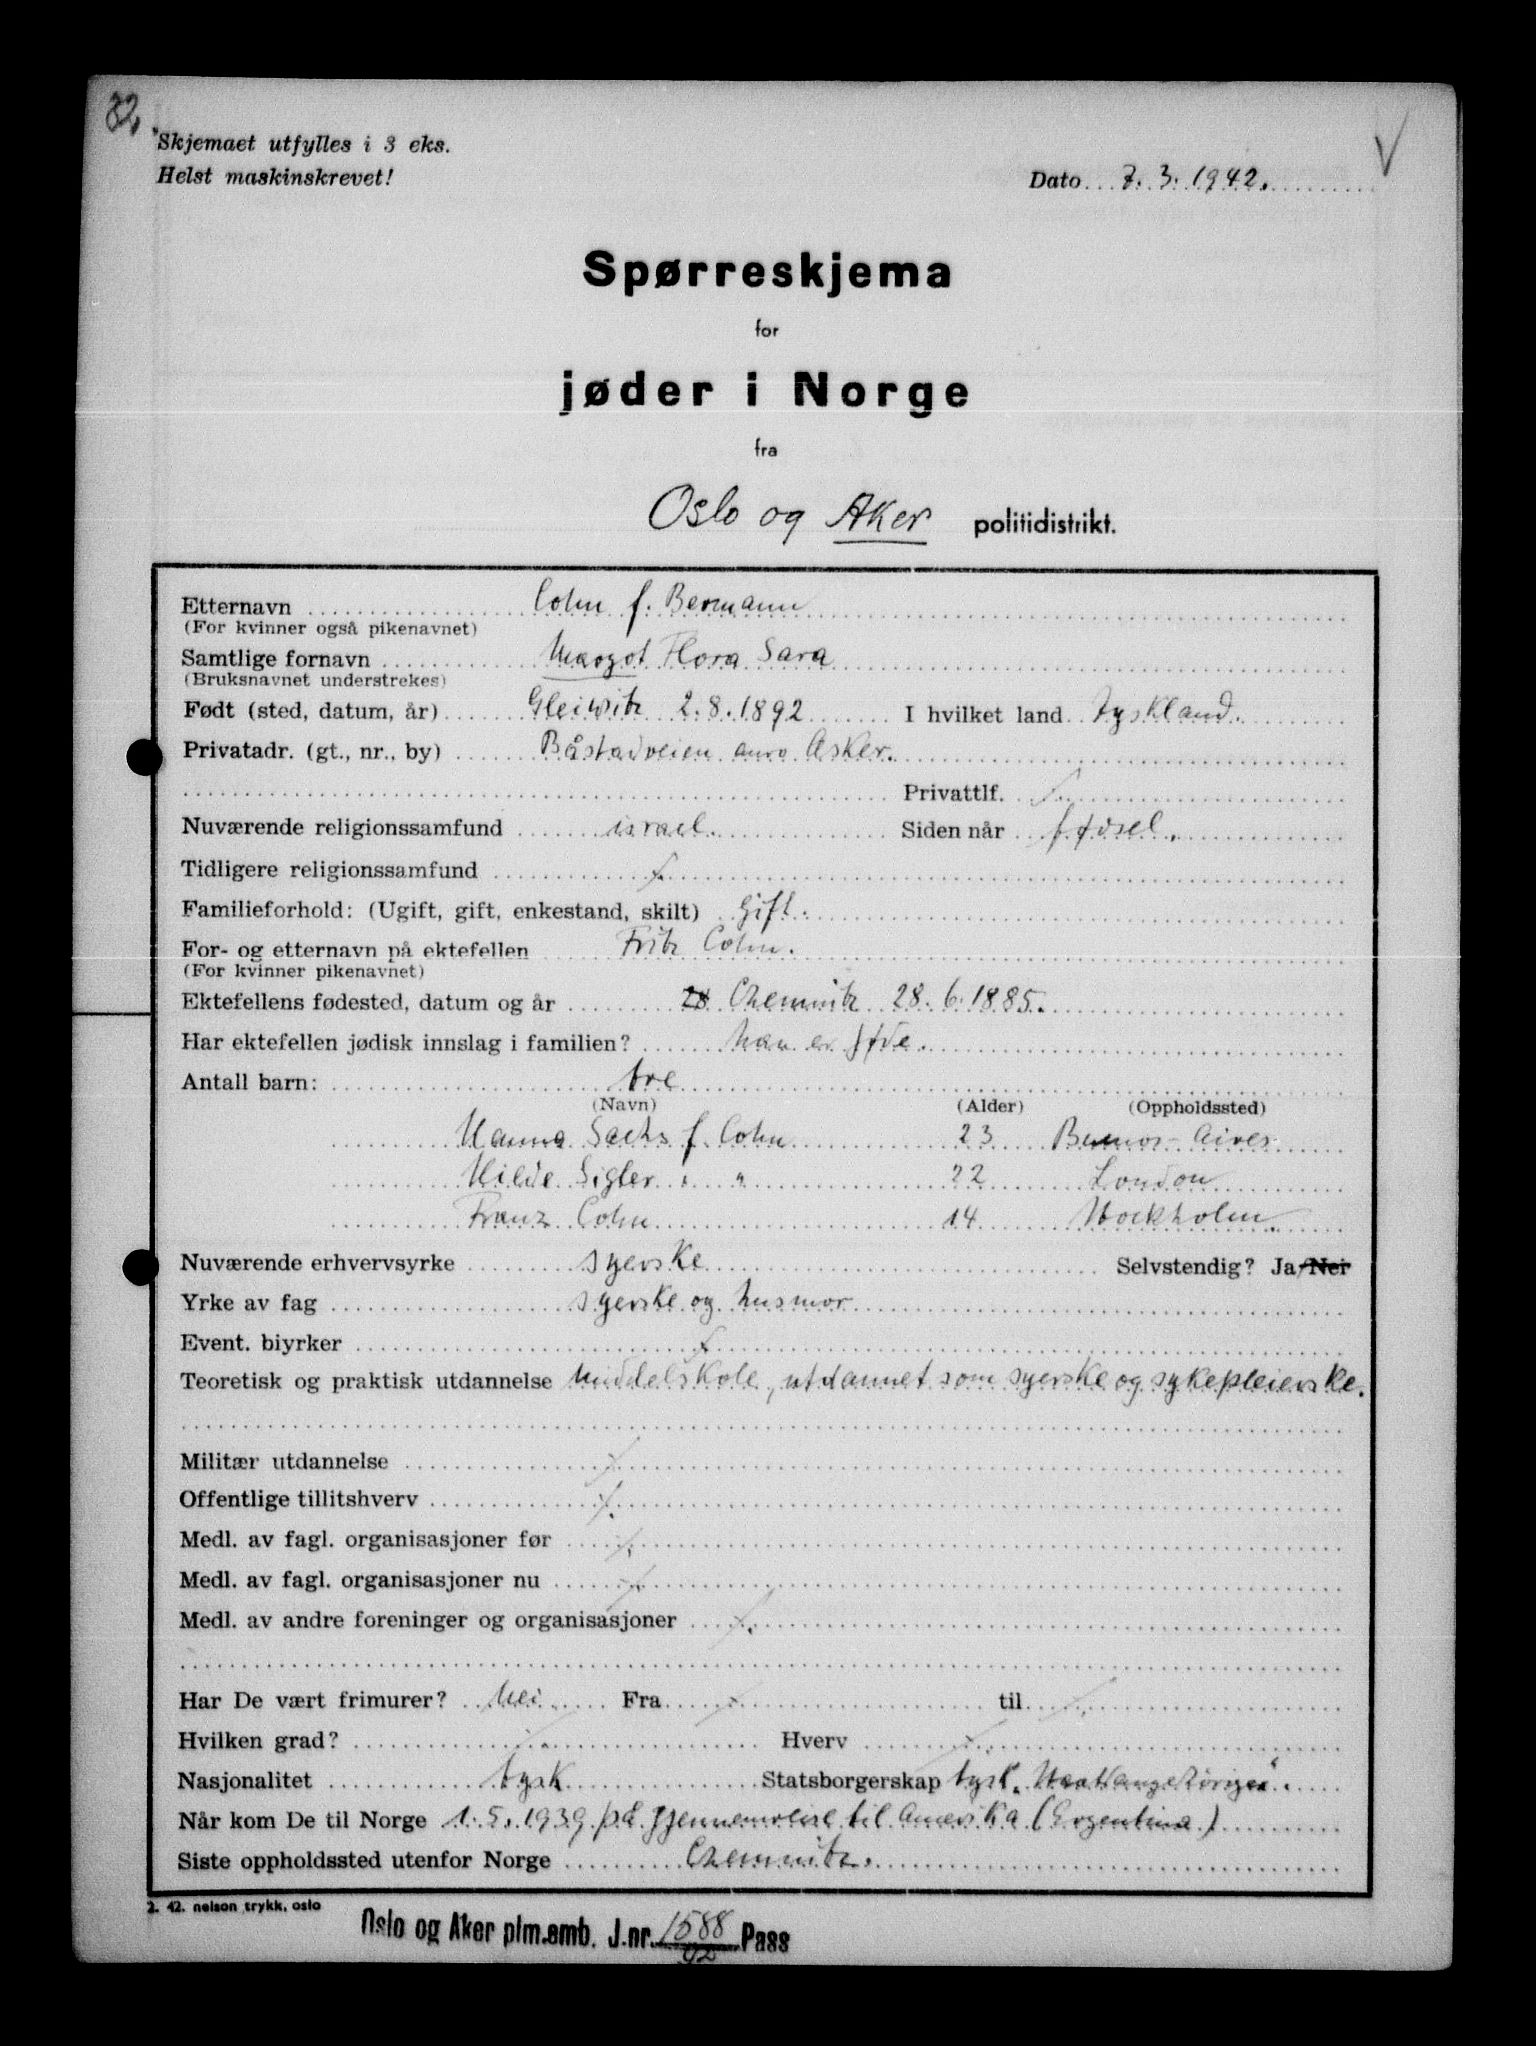 32,
Skjemaet utfylles i 3 eks.
Helst maskinskrevet!
Dato 7.3.1942.
Spørreskjema
for
jøder i Norge
fra
Oslo og Aker politidistrikt.
Etternavn Cohn f. Bermann
(For kvinner også pikenavnet)
Samtlige fornavn Margot Flora Sara
(Bruksnavnet understrekes)
Født (sted, datum, år) Gleiwitz 2.8.1892 I hvilket land Tyskland.
Privatadr. (gt., nr., by) Båstadveien Asker.
Privattlf.
Nuværende religionssamfund israel. Siden når fødsel.
Tidligere religionssamfund
Familieforhold: (Ugift, gift, enkestand, skilt) Gift.
For- og etternavn på ektefellen Fritz Cohn.
(For kvinner pikenavnet)
Ektefellens fødested, datum og år 28 Chemnitz 28.6.1885.
Har ektefellen jødisk innslag i familien? Han er jøde.
Antall barn: tre
(Navn) (Alder) (Oppholdssted)
Hanna Sachs f. Cohn 23 Buenos-Aires
Hilde Sigler " " 22 London
Franz Cohn 14 Stockholm.
Nuværende erhvervsyrke syerske Selvstendig? Ja/Nei
Yrke av fag syerske og husmor
Event. biyrker
Teoretisk og praktisk utdannelse Middelskole, utdannet som syerske og sykepleierske.
Militær utdannelse
Offentlige tillitshverv
Medl. av fagl. organisasjoner før
Medl. av fagl. organisasjoner nu
Medl. av andre foreninger og organisasjoner
Har De vært frimurer? Nei Fra til
Hvilken grad? Hverv
Nasjonalitet tysk Statsborgerskap tysk
Når kom De til Norge 1.5.1939 på gjennemreise til Amerika (Ergentina)
Siste oppholdssted utenfor Norge Chemnitz.
2. 42. nelson trykk, oslo
Oslo og Aker plm.emb. J.nr. 1588/42 Pass